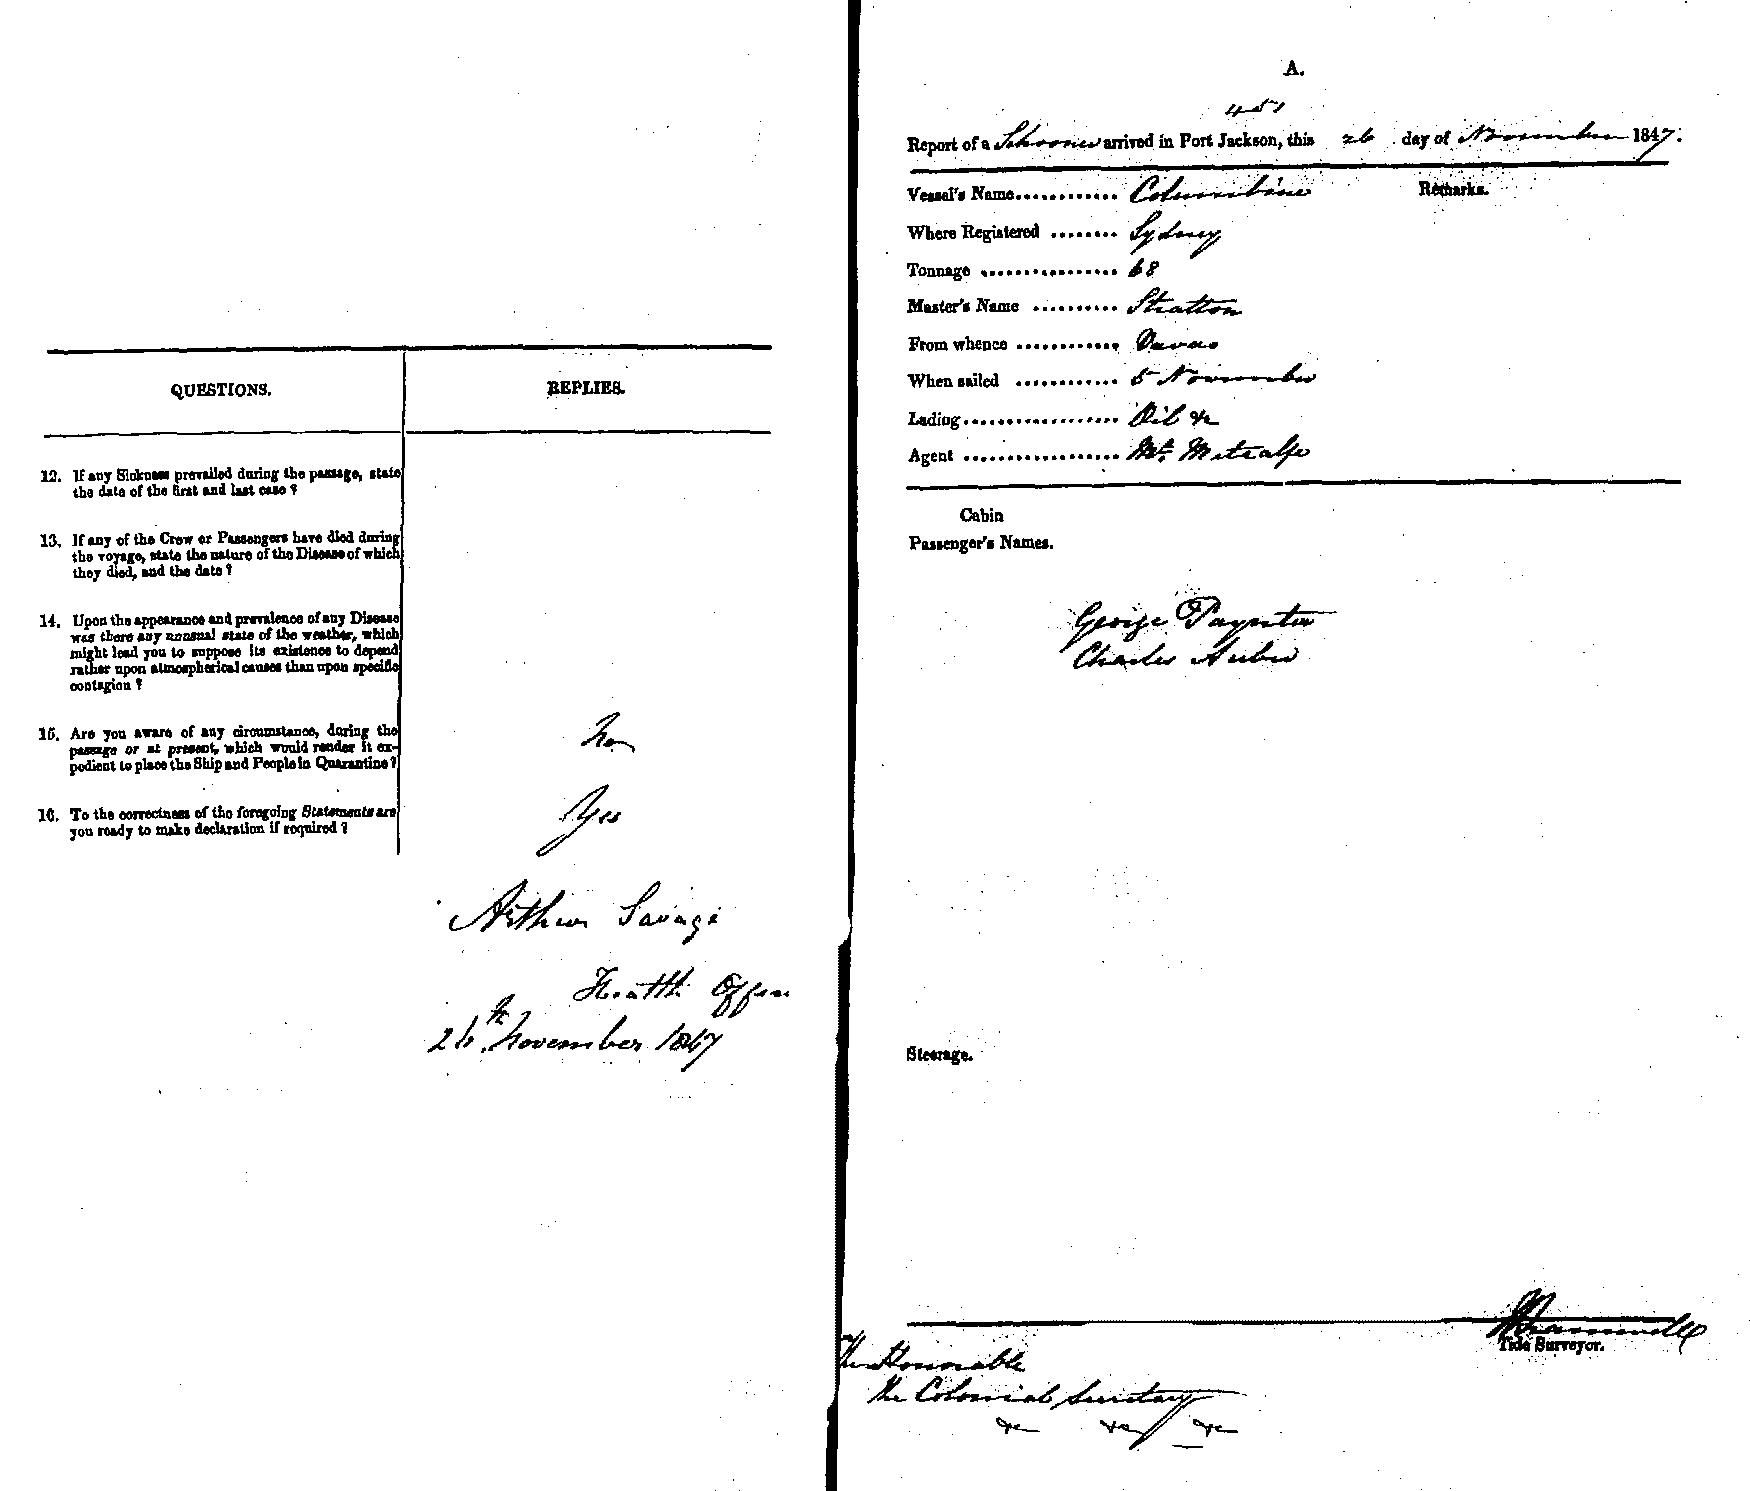 QUESTIONS.
REPLIES.
12. If any Sickness prevailed during the passage, state
the date of the first and last case ?
13. If any of the Crew or Passengers have died during
the voyage, state the nature of the Disease of which
they died, and the date ?
14. Upon the appearance and prevalence of any Disease
was there any unusual state of the weather, which
might lead you to suppose its existence to depend
rather upon atmospherical causes than upon specific
contagion ?
15. Are you aware of any circumstance, during the
passage or at present, which would render it ex-
pedient to place the Ship and People in Quarantine ?
No
16. To the correctness of the foregoing Statements are
you ready to make declaration if required ?
Yes
Arthur Savage
Health Officer
26th. November 1847
A.
451
Report of a Schooner arrived in Port Jackson, this 26 day of November 1847.
Remarks.
Vessel's Name............ Columbine
Where Registered ........ Sydney
Tonnage ................ 68
Master's Name .......... Stratton
From whence ............
When sailed ............ 5 November
Lading.................. Oil &c
Agent .................. Mr. Metcalfe
Cabin
Passenger's Names.
George Paynter
Charles
Steerage.
Tide Surveyor.
The Honorable
the Colonial Secretary
&c &c &c